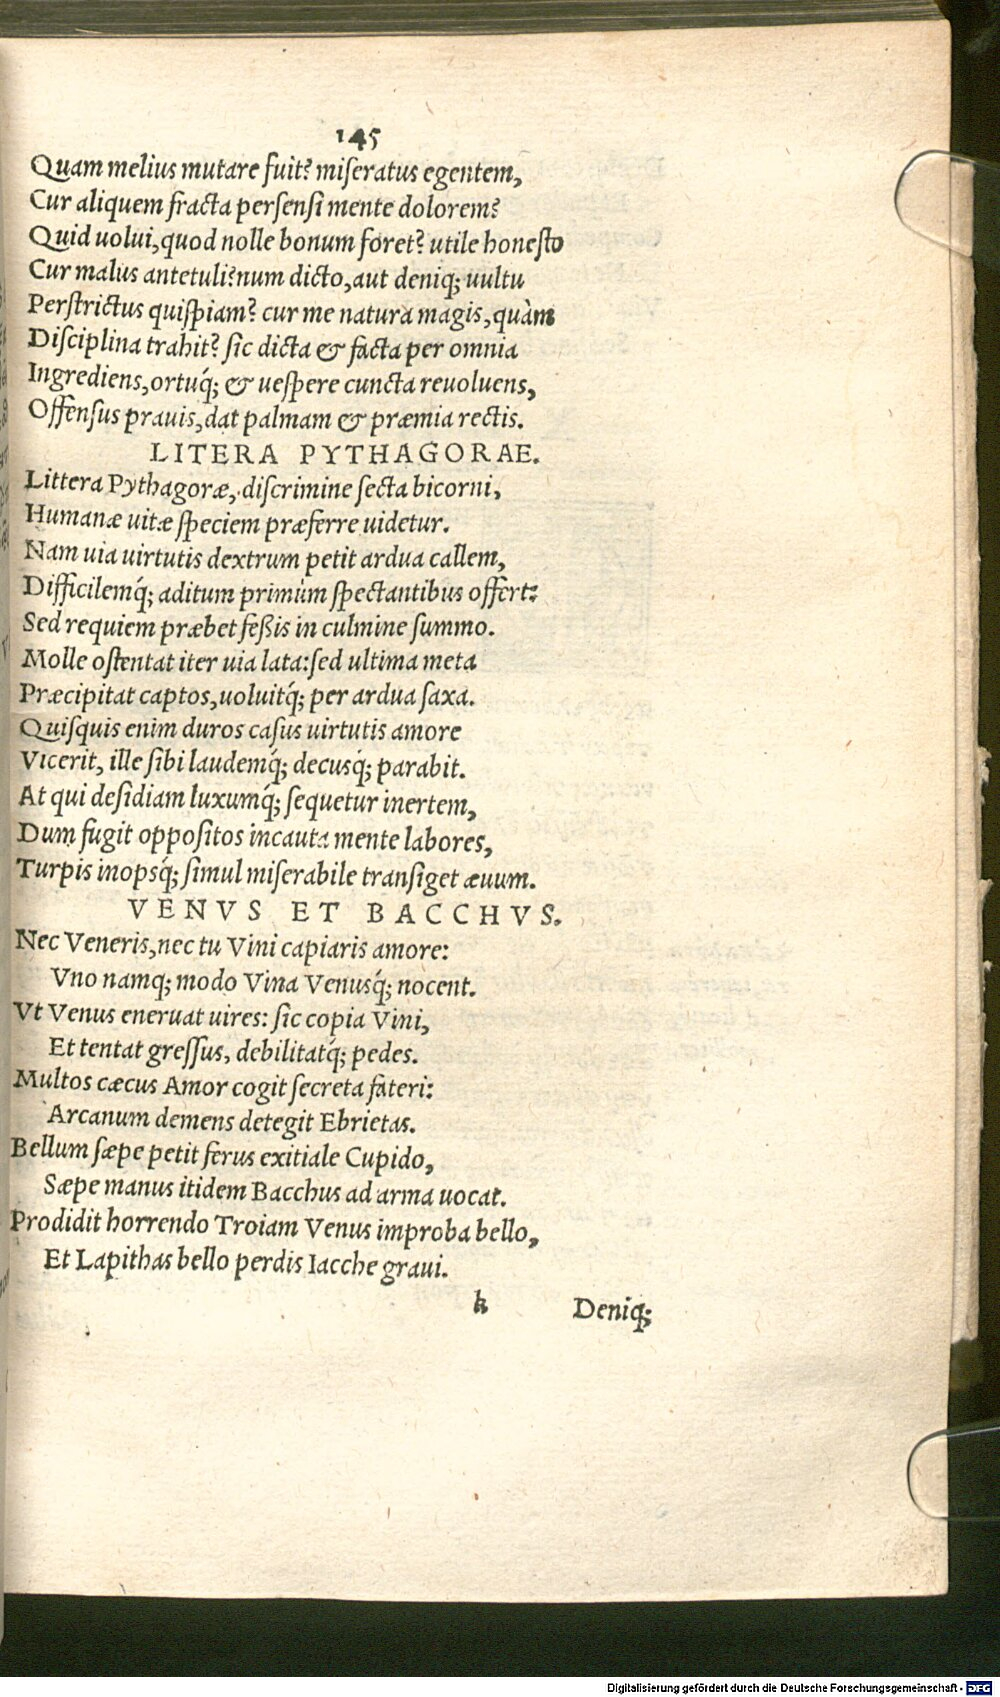 145
Quam melius mutare fuit? miseratus egentem,
Cur aliquem fracta persensi mente dolorem?
Quid uolui, quod nolle bonum foret? utile honesto
Cur malus antetuli? num dicto, aut deniq; uultu
Perstrictus quispiam? cur me natura magis, quàm
Disciplina trahit? sic dicta & facta per omnia
Ingrediens, ortuq́; & uespere cuncta reuoluens,
Offensus prauis, dat palmam & præmia rectis.
LITERA PYTHAGORAE.
Littera Pythagoræ, discrimine secta bicorni,
Humanæ uitæ speciem præferre uidetur.
Nam uia uirtutis dextrum petit ardua callem,
Difficilemq́; aditum primùm spectantibus offert:
Sed requiem præbet feßis in culmine summo.
Molle ostentat iter uia lata: sed ultima meta
Præcipitat captos, uoluitq́; per ardua saxa.
Quisquis enim duros casus uirtutis amore
Vicerit, ille sibi laudemq́; decusq́; parabit.
At qui desidiam luxumq́; sequetur inertem,
Dum fugit oppositos incauta mente labores,
Turpis inopsq́; simul miserabile transiget æuum.
VENVS ET BACCHVS.
Nec Veneris, nec tu Vini capiaris amore:
Vno namq; modo Vina Venusq́; nocent.
Vt Venus eneruat uires: sic copia Vini,
Et tentat gressus, debilitatq́; pedes.
Multos cæcus Amor cogit secreta fateri:
Arcanum demens detegit Ebrietas.
Bellum sæpe petit ferus exitiale Cupido,
Sæpe manus itidem Bacchus ad arma uocat.
Prodidit horrendo Troiam Venus improba bello,
Et Lapithas bello perdis Iacche graui.
k Deniq;
Digitalisierung gefördert durch die Deutsche Forschungsgemeinschaft - DFG